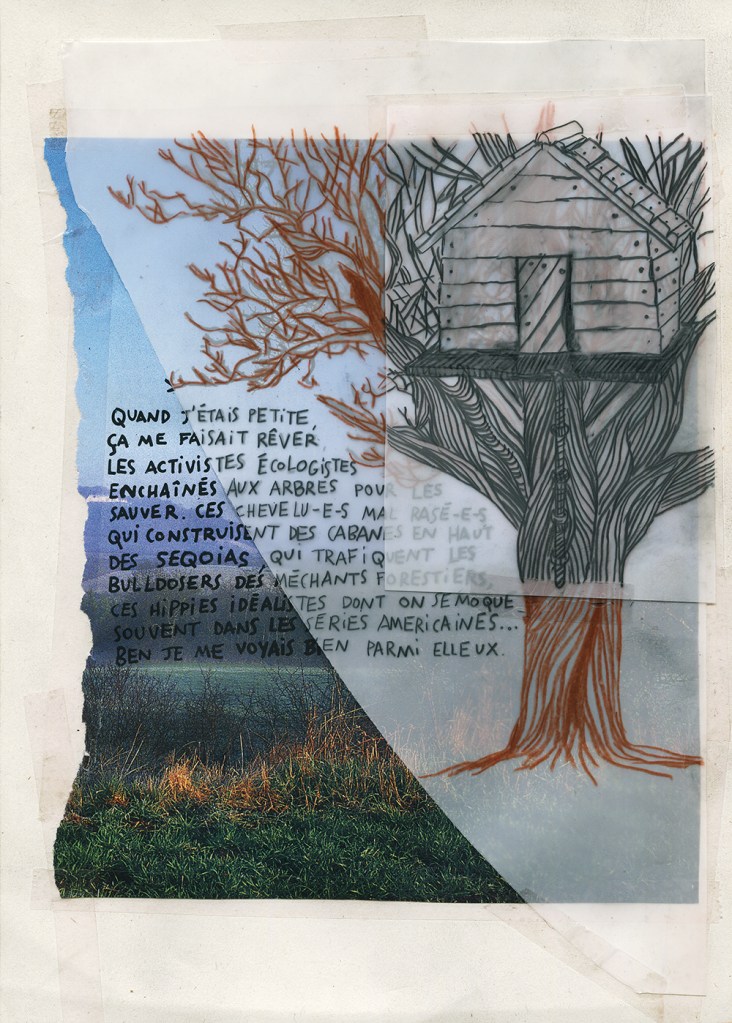 QUAND J'ÉTAIS PETITE,
ÇA ME FAISAIT RÊVER
LES ACTIVISTES ÉCOLOGISTES
ENCHAÎNÉS AUX ARBRES POUR LES
SAUVER. CES CHEVELU-E-S MAL RASÉ-E-S
QUI CONSTRUISENT DES CABANES EN HAUT
DES SEQOIAS, QUI TRAFIQUENT LES
BULLDOSERS DES MÉCHANTS FORESTIERS,
CES HIPPIES IDÉALISTES DONT ON SE MOQUE
SOUVENT DANS LES SÉRIES AMERICAINES...
BEN JE ME VOYAIS BIEN PARMI ELLEUX.